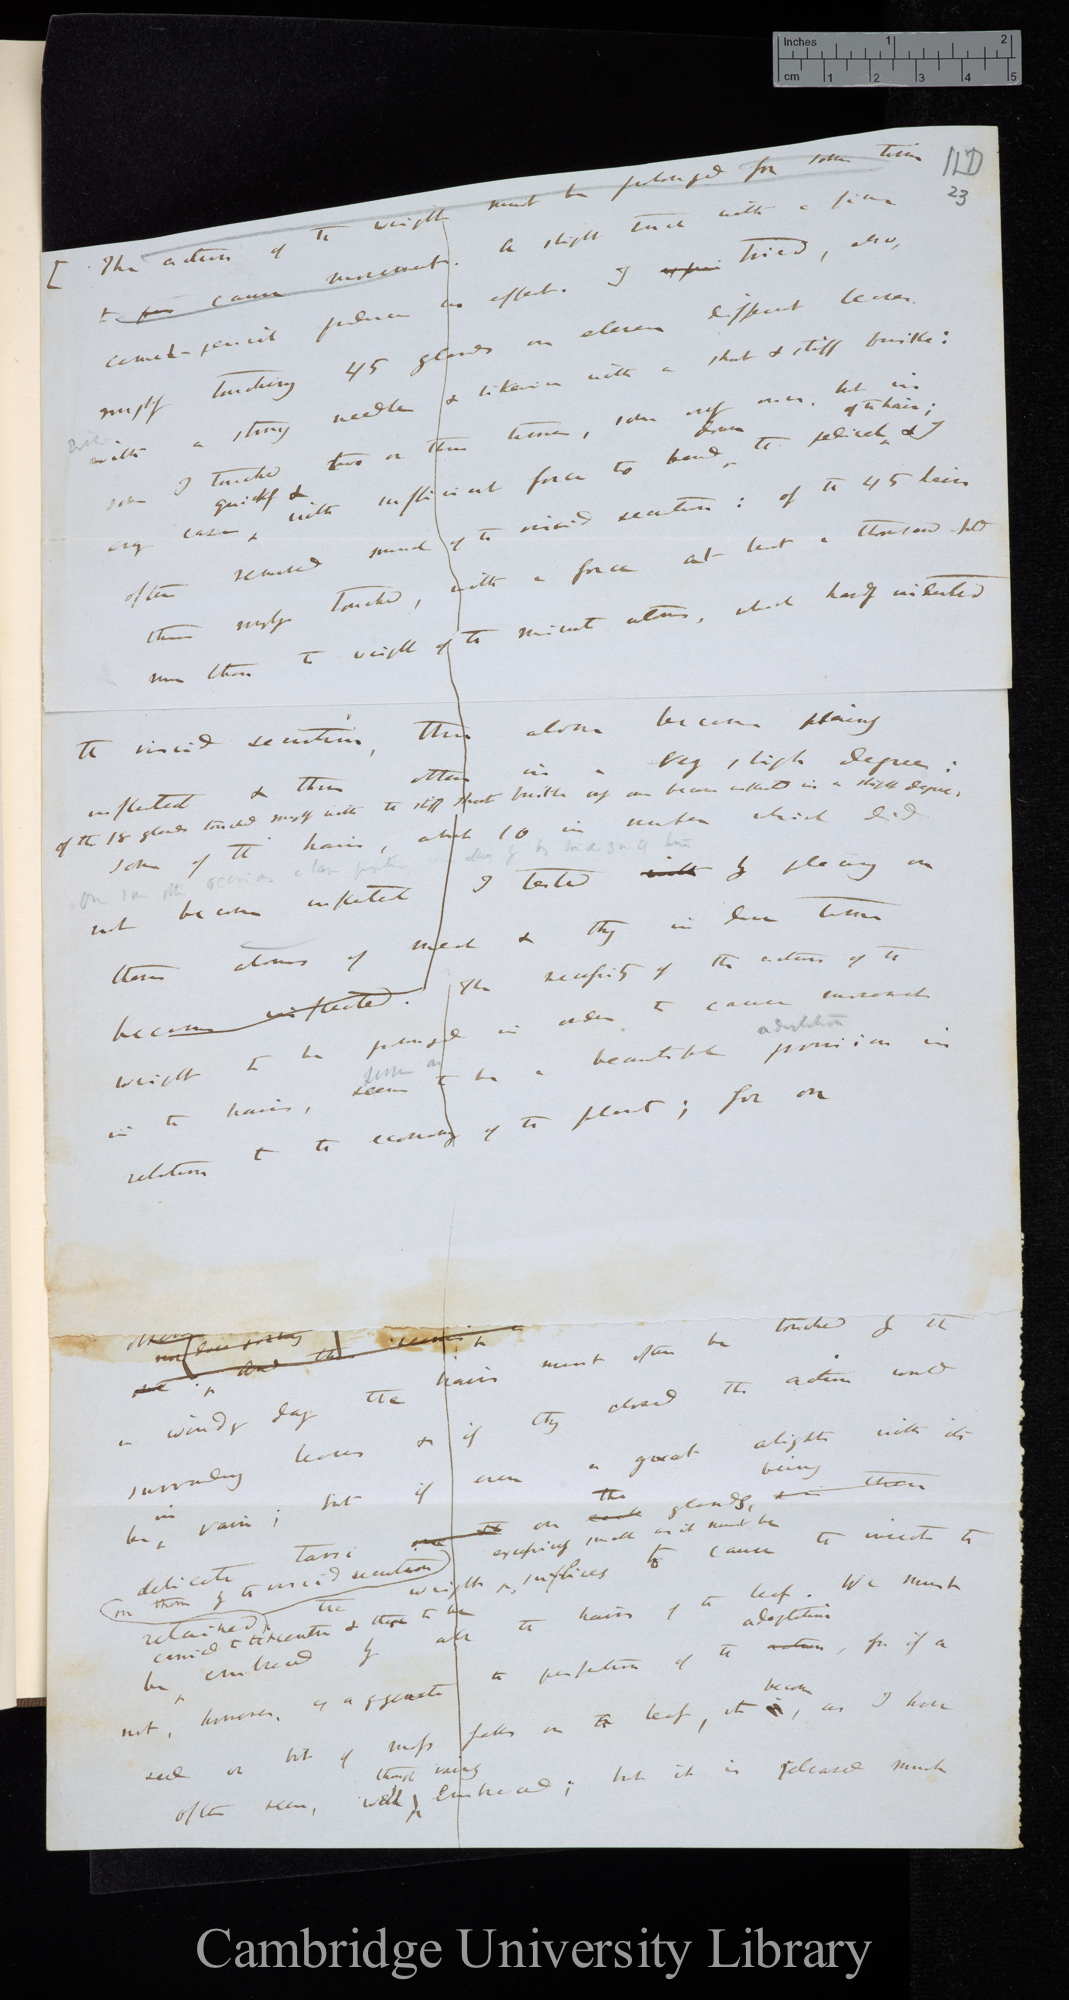 Inches 1 2
cm 1 2 3 4 5
23
[ The action of the weight must be prolonged for some time
to cause movement. A slight touch with a fine
camel-pencil produces no effect. I tried, also,
simply touching 45 glands on eleven different leaves.
with a strong needle & likewise with a short & stiff bristle:
some I touched two or three times, some only once. but in
down of the hairs;
quickly &
every case with sufficient force to bend the pedicel & I
often removed much of the viscid secretion: of the 45 hairs
thus simply touched, with a force at least a thousand-fold
more than the weight of the minute atoms, which hardly indented
the viscid secretion, three alone became plainly
inflected & three others in a very slight degree:
of the 18 glands touched simply with the stiff short bristle only one became inflected in a slight degree.
some of the hairs, about 10 in number which did
not become inflected I tested with by placing on
them atoms of meat & they in due time
became inflected. The necessity of the action of the
weight to be prolonged in order to cause movement
adaptation
in the hairs, seems to be a beautiful provision in
relation to the economy of the plant; for on
a windy day the hairs must often be touched by the
surrounding leaves & if they closed the action would
be in vain; but if even a gnat alights with its
delicate tarsi on the glands, being
on them by the viscid secretion
retained, the weight suffices to cause the insect to
exceedingly small as it must be
carried to the centre & there to be
be embraced by all the hairs of the leaf. We must
not, however, exaggerate the perfection of the adaptation, for if a
seed or bit of moss falls on the leaf, it becomes, as I have
often seen, well embraced; but it is released much
Cambridge University Library